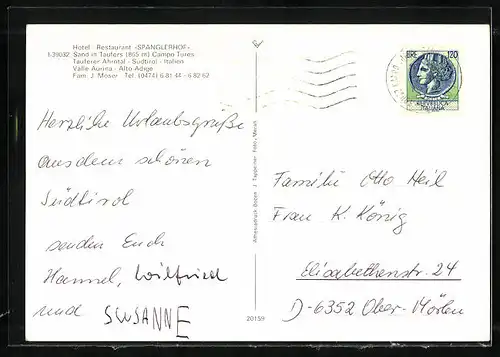 Hotel - Restaurant »SPANGLERHOF«
I-39032 Sand in Taufers (865 m) Campo Tures
Tauferer Ahrntal - Südtirol - Italien
Valle Aurina - Alto Adige
Fam. J. Moser Tel. (0474) 6 81 44 - 6 82 62
LIRE 120
Herzliche Urlaubsgrüße
aus dem schönen
Südtirol
senden Euch
Hannel, Wilfried
und SUSANNE
Familie Otto Heil
Frau K. König
Elisabethenstr. 24
D-6352 Ober-Mörlen
J. Tappeiner Foto, Meran
20159